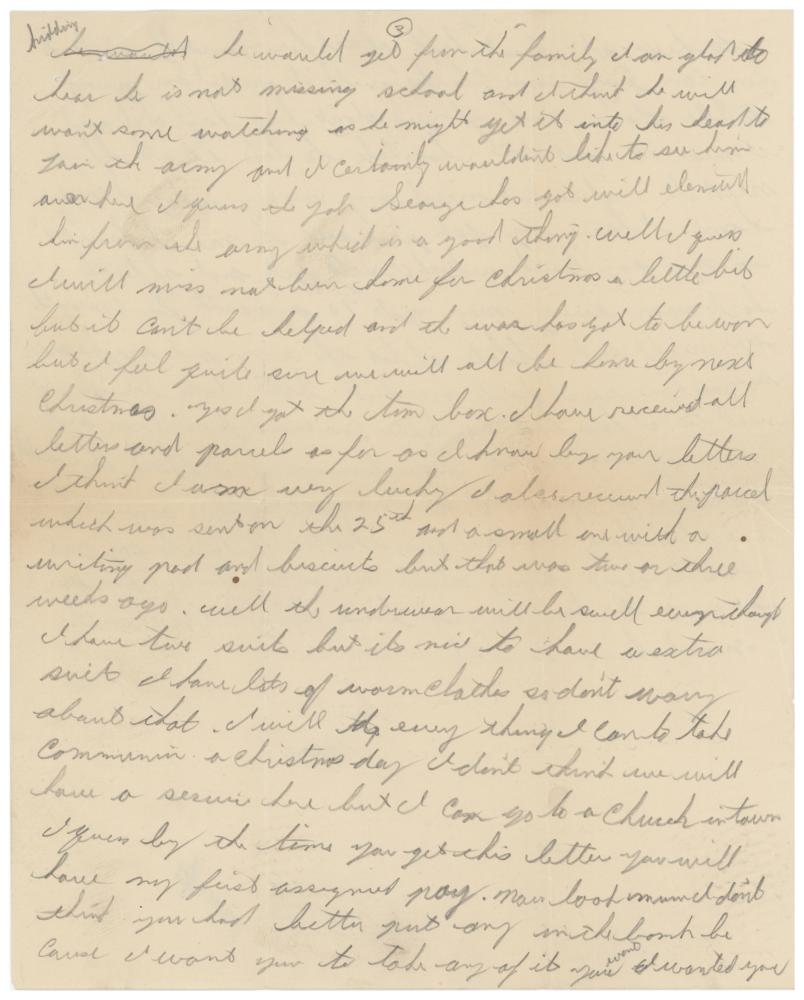 3
kidding
he would get from the family I am glad to
hear he is not missing school and I think he will
want some watching as he might get it into his head to
Join the army and I certainly wouldn't like to see him
over here I guess the job George has got will
him from the army which is a good thing. well I guess
I will miss not been home for Christmas a little bit
but it can't be helped and the war has got to be won
but I feel quite sure we will all be home by next
Christmas. yes I got the tom box. I have received all
letters and parcels as far as I know by your letters
I think I am very lucky I also received the parcel
which was sent on the 25th and a small one with a
writing pad and biscuits but that was two or three
weeks ago. well the underwear will be swell even though
I have two suits but its nice to have a extra
suit I have lots of warm clothes so don't worry
about that. I will every thing I can to take
Communin a Christmas day I don't think we will
have a servic here but I can go to a Church in town
I guess by the time you get this letter you will
have my first assigned pay. now look mum I don't
think you had better put any in the bank be
cause I want you to take any of it you want I wanted you